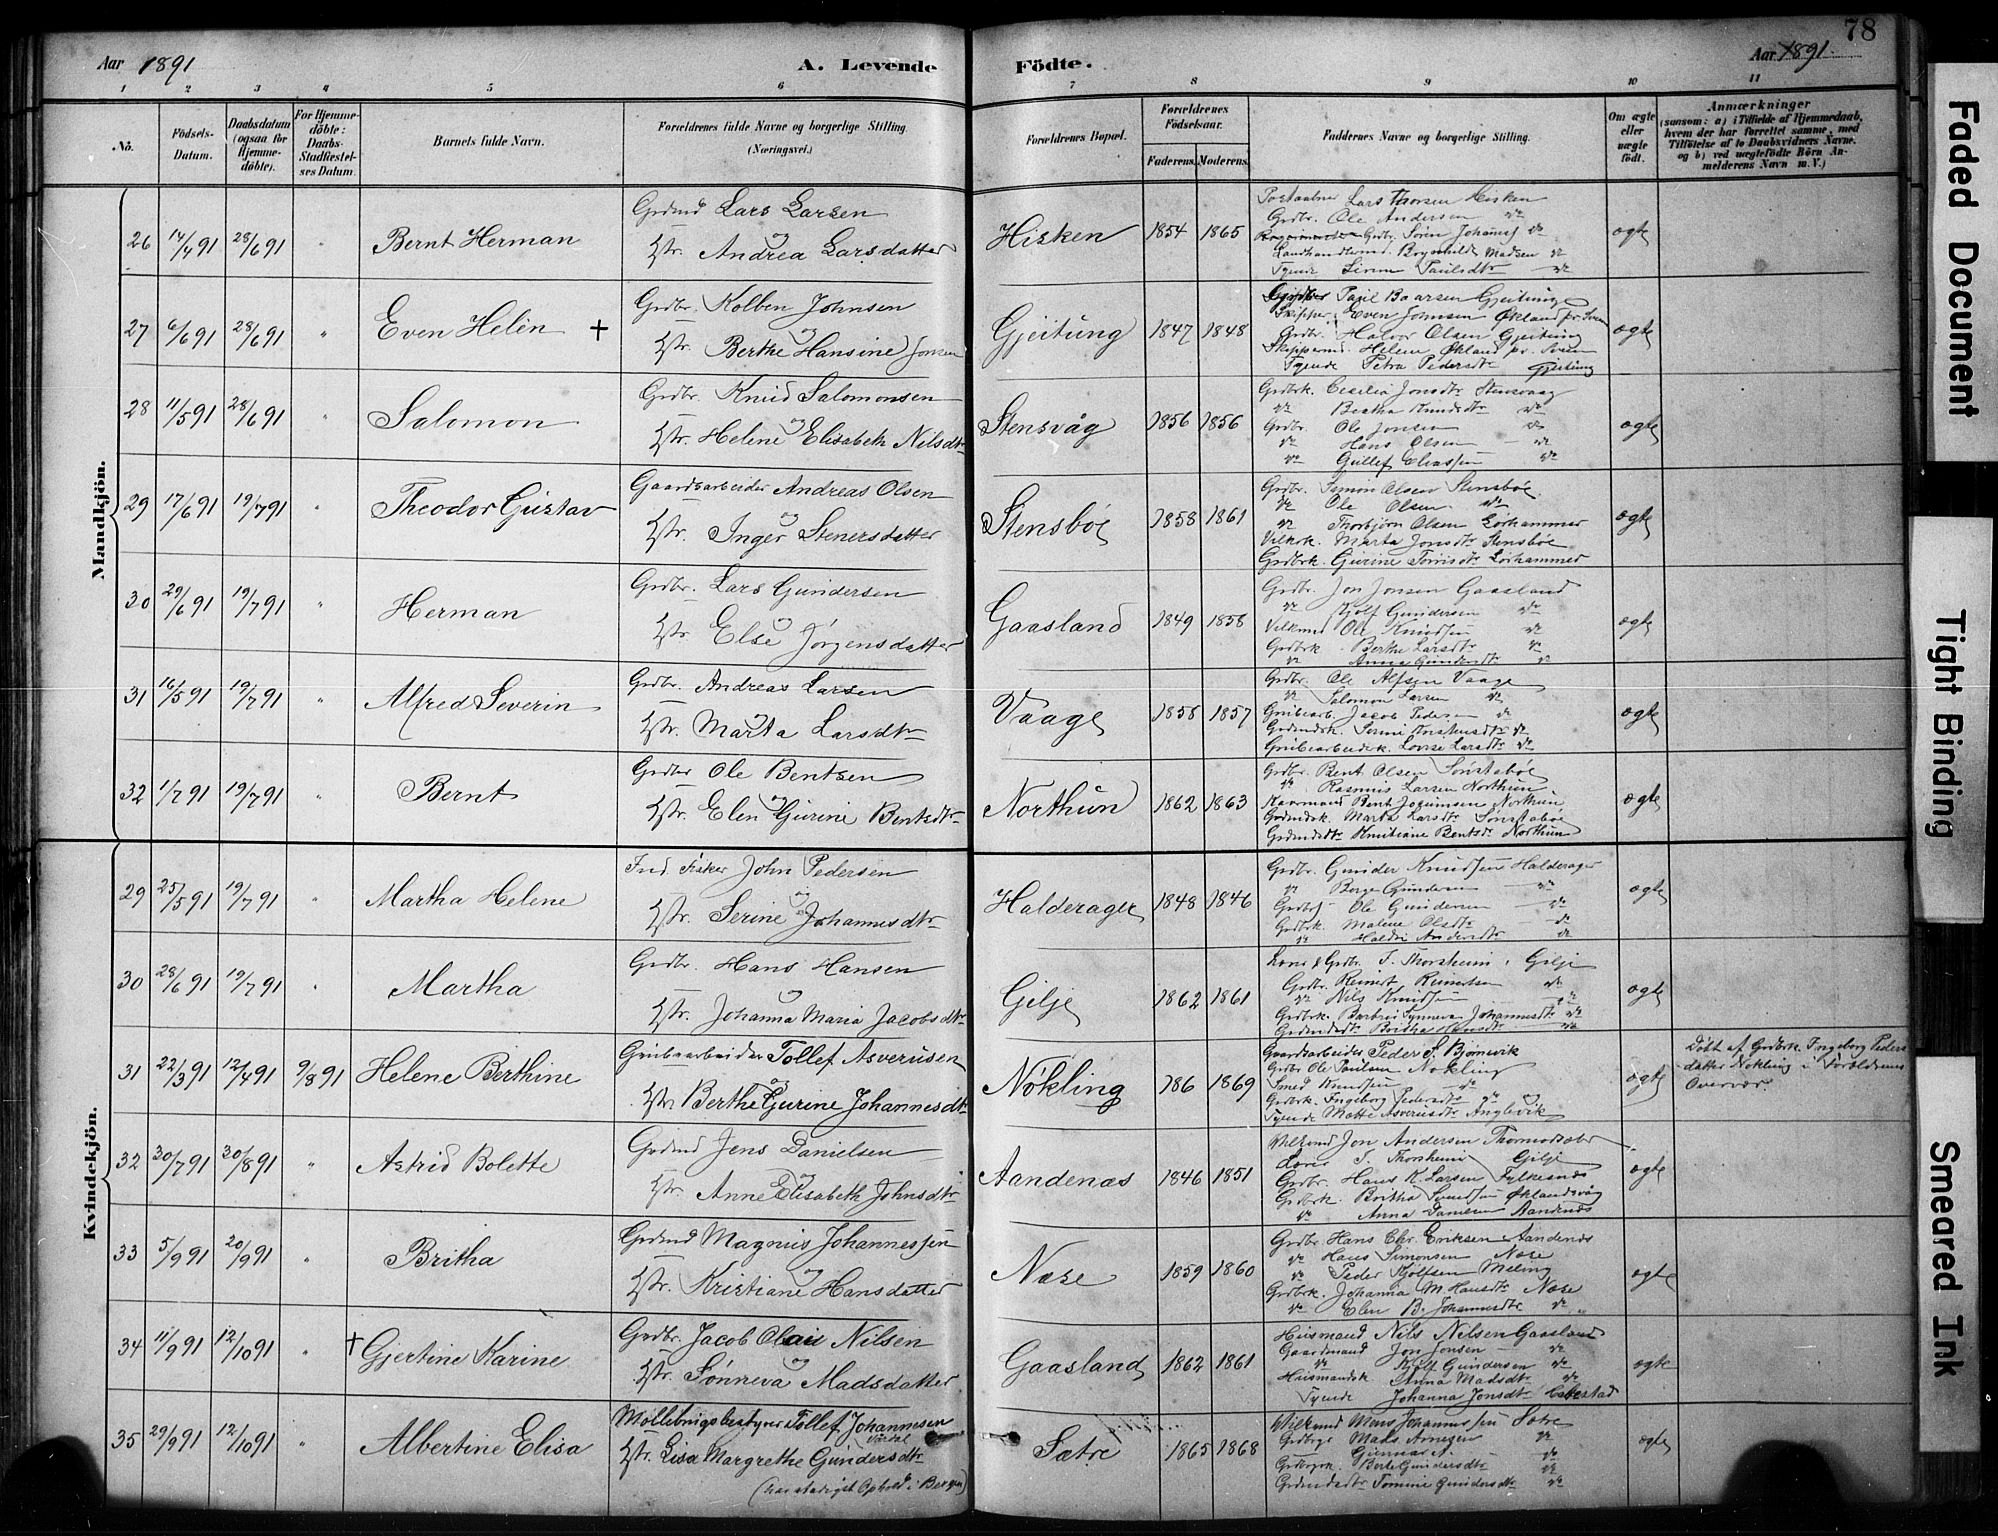 78
Aar 1891
A. Levende
Födte.
Aar 1891
1 2 3 4 5 6 7 8 9 10 11
No.
Födsels-Datum.
Daabsdatum (ogsaa for Hjemme-döbte).
For Hjemme-döbte: Daabs-Stadfæstel-ses Datum.
Barnets fulde Navn.
Forældrenes fulde Navne og borgerlige Stilling. (Næringsvei.)
Forældrenes Bopæl.
Forældrenes Födselsaar.
Faderens. Moderens.
Faddernes Navne og borgerlige Stilling.
Om ægte eller uægte födt.
Anmærkninger
(saasom: a) i Tilfælde af Hjemmedaab, hvem der har forrettet samme, med Tilföielse af to Daabsvidners Navne, og b) ved uægtefödte Börn An-melderens Navn m. V.)
Mandkjön.
26 14/4 91 28/6 91 " Bernt Herman
Grdmd Lars Larsen
og
Hstr. Andrea Larsdatter
Hisken 1854 1865
Lars Thorsen Hisken
Grdbr. Ole Andersen do
Grdbr. Sören Johannes do
Landhandlermd. Brynhild Madsen do
Tjende Sirine Paulsdtr do
ægte
27 6/6 91 28/6 91 " Even Helén +
Grdbr. Kolben Johnsen
og
Hstr. Berthe Hansine Jonsen
Gjeitung 1847 1848
Paul Baarsen Gjeitung
Skipper Even Johnsen Økland pr. Sveen
Grdbr. Halvor Olsen Gjeitung
Skippermd. Helene Økland pr. Sveen
Tjende Petra Pedersdtr Gjeitung
ægte
28 11/5 91 28/6 91 " Salomon
Grdbr. Knud Salomonsen
og
Hstr. Helene Elisabeth Nilsdtr
Stensvåg 1856 1856
Grdbrk. Cecilia Jonsdtr Stensvaag
do Bertha Knudsdtr do
Grdbr. Ole Jonsen do
do Hans Olsen do
do Gullef Eliassen do
ægte
29 17/6 91 19/7 91 " Theodor Gustav
Gaardsarbeider Andreas Olsen
og
Hstr. Inger Stenersdatter
Stensböe 1858 1861
Grdbr. Simon Olsen Stensböe
do Ole Olsen do
do Thorbjörn Olsen Lörhammer
Vilkrk. Marta Jonsdtr Stensböe
Grdbrk. Gurine Tönisdtr Lörhammer
ægte
30 29/6 91 19/7 91 " Herman
Grdbr. Lars Gundersen
og
Hstr. Else Jörgensdatter
Gaasland 1849 1858
Grdbr. Jon Jonsen Gaasland
do Kjölf Gundersen do
Vilkmd Ole Knudsen do
Grdbrk. Berthe Larsdtr do
do Anna Gundersdtr do
ægte
31 16/5 91 19/7 91 " Alfred Severin
Grdbr. Andreas Larsen
og
Hstr. Marta Larsdtr
Vaage 1858 1857
Grdbr. Ole Alfsen Vaage
do Salomon Larsen do
Grubearb. Jacob Pedersen do
Grdmdsk. Serine Torstensdtr do
Grubearbeidrk. Lovise Larsdtr do
ægte
32 1/7 91 19/7 91 " Bernt
Grdbr Ole Bentsen
og
Hstr. Elen Gurine Bentsdtr
Northun 1862 1863
Grdbr. Bent Olsen Sönstaböe
do Rasmus Larsen Northun
Kaarmand Bent Joguimsen Northun
Grdmdsk. Marta Larsdtr Sönstaböe
Grdmdsdtr Knutiane Bentsdr Northun
ægte
Kvindekjön.
29 25/5 91 19/7 91 " Martha Helene
Ind. Fisker John Pedersen
og
Hstr. Serine Johannesdtr
Halderager 1848 1846
Grdbr. Gunder Knudsen Halderager
do Börge Gundersen do
Grdbrs Ole Gundersen do
Grdbrk. Malene Olsdtr do
do Haldri Andersdtr do
ægte
30 28/6 91 19/7 91 " Martha
Grdbr. Hans Hansen
og
Hstr. Johanna Maria Jacobsdtr
Gilje 1862 1861
Lærer & Grdbr. T. Thorsheim, Gilje
Grdbr. Reinert Reinertsen do
do Nils Knudsen do
Grdbrk. Barbru Synneva Johannesdtr do
Grdmdsdtr Britha Hansdtr do
ægte
31 22/3 91 12/4 91 9/8 91 Helene Berthine
Grubearbeider Tollef Asverusen
og
Hstr Berthe Gurine Johannesdtr
Nökling 186 1869
Gaardsarbeider Peder S. Bjørnevik
Grdbr Ole Paulsen Nökling
Smed Knudsen do
Grdbrk. Ingeborg Pedersdtr do
Tjende Mette Asverusdtr Anglevik
ægte
Döbt af Grdbrk. Ingeborg Peders
datter Nökling i Forældrenes
Overvær.
32 30/7 91 30/8 91 " Astrid Bolette
Grdmd Jens Danielsen
og
Hstr. Anne Elisabeth Johnsdtr
Aandenæs 1846 1851
Vilkmd Jon Andersen Thormodsæter
Lærer T. Thorsheim Gilje
Grdbr. Hans K. Larsen Fylkesnæs
Grdbrk. Britha Svendsen Øklandsvåg
do Anna Danielsen Aandenæs
ægte
33 5/9 91 20/9 91 " Britha
Grdmd Magnus Johannessen
og
Hstr. Kristiane Hansdatter
Næse 1859 1860
Grdbr. Hans Chr. Eriksen Aandenæs
do Hans Simonsen Næse
do Peder Kjölfsen Mæling
Grdbrk. Johanna M. Hansdtr Næse
do Elen B. Johannesdtr do
ægte
34 11/9 91 12/10 91 " + Gjertine Karine
Grdbr. Jacob Olai Nilsen
og
Hstr. Sönneva Madsdatter
Gaasland 1862 1861
Husmand Nils Nilsen Gaasland
Gaardmand Jon Jonsen do
do Kjölf Gundersen do
Husmandsk. Anna Madsdtr do
Tjende Johanna Jonsdtr Ebbestad
ægte
35 29/9 91 12/10 91 " Albertine Elisa
Möllebrugsbestyrer Tollef Johannesen
Vardal
Hstr. Lisa Margrethe Gundersdtr
(har stadigst Ophold i Bergen)
Sætre 1865 1868
Vilkmd Mons Johannessen Sætre
Grdbrgr Mads Arnesen do
Gunnar A. do
Grdbrgrk. Berte Gundersdtr do
Grdmdsdtr Tomine Gundersdtr do
ægte
Faded Document
Tight Binding
Smeared Ink